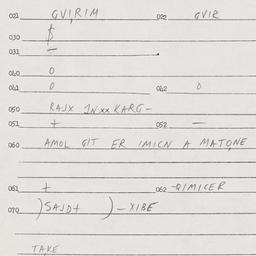 021 GVIRIM 022 GVIR
030 $
031 —
040 0
041 0 042 0
050 RAJX JN xx KARG-
051 + 052 —
060 AMOL GIT ER IMICN A MATONE
061 + 062 -QIMICER
070 )SAJD+ )-XIBE
TAKE